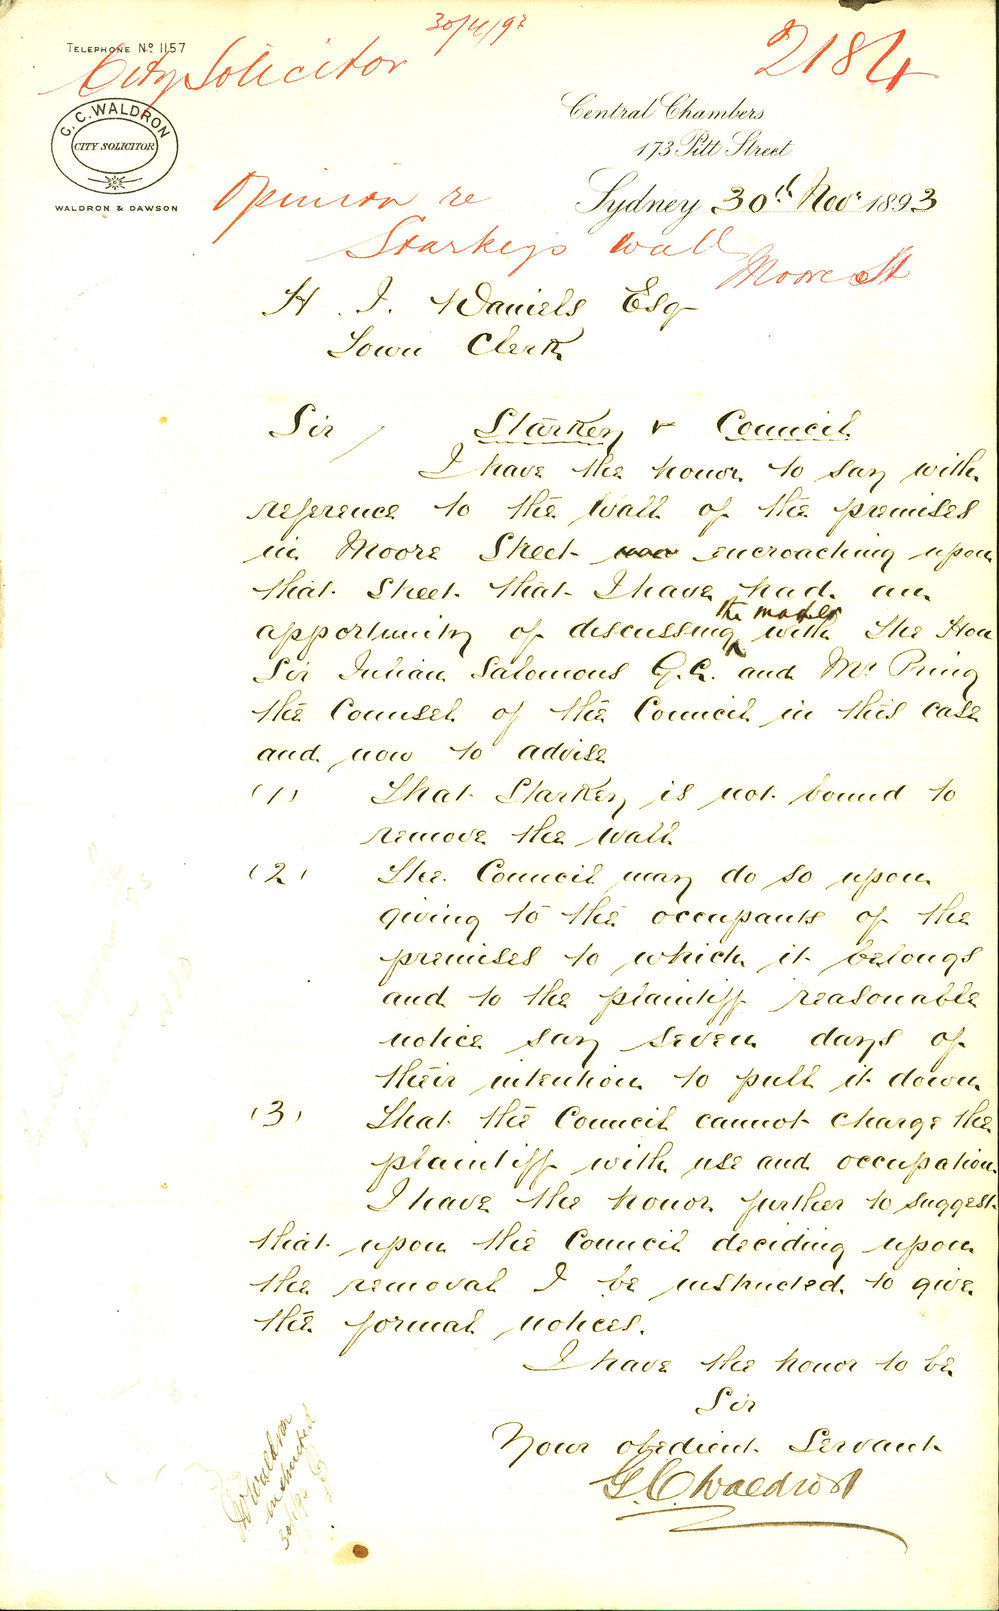 30/11/93
TELEPHONE No 1157
City Solicitor
2184
G. C. WALDRON
CITY SOLICITOR
WALDRON & DAWSON
Central Chambers
173 Pitt Street
Sydney 30th Novr 1893
Opinion re
Starkey's Wall
Moore St
H. J. Daniels Esq
Town Clerk
Sir, Starkey v Council
I have the honor to say with
reference to the Wall of the premises
in Moore Street encroaching upon
that Street that I have had an
opportunity of discussing the matter with The Hon
Sir Julian Salomons Q.C. and Mr Pring
the Counsel of the Council in this case
and now to advise
(1) That Starkey is not bound to
remove the wall
(2) The Council may do so upon
giving to the occupants of the
premises to which it belongs
and to the plaintiff reasonable
notice say seven days of
their intention to pull it down
(3) That the Council cannot charge the
plaintiff with use and occupation.
I have the honor further to suggest
that upon the Council deciding upon
the removal I be instructed to give
the formal notices.
I have the honor to be
Sir
Your obedient Servant
G. C. Waldron
Waldron
instructed